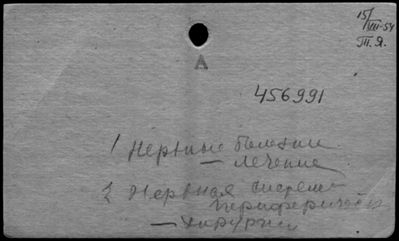 15/VIII-54
П. Я.
А
456991
1 Нервные болезни
— лечение
2 Нервная система
периферическая
— хирургия